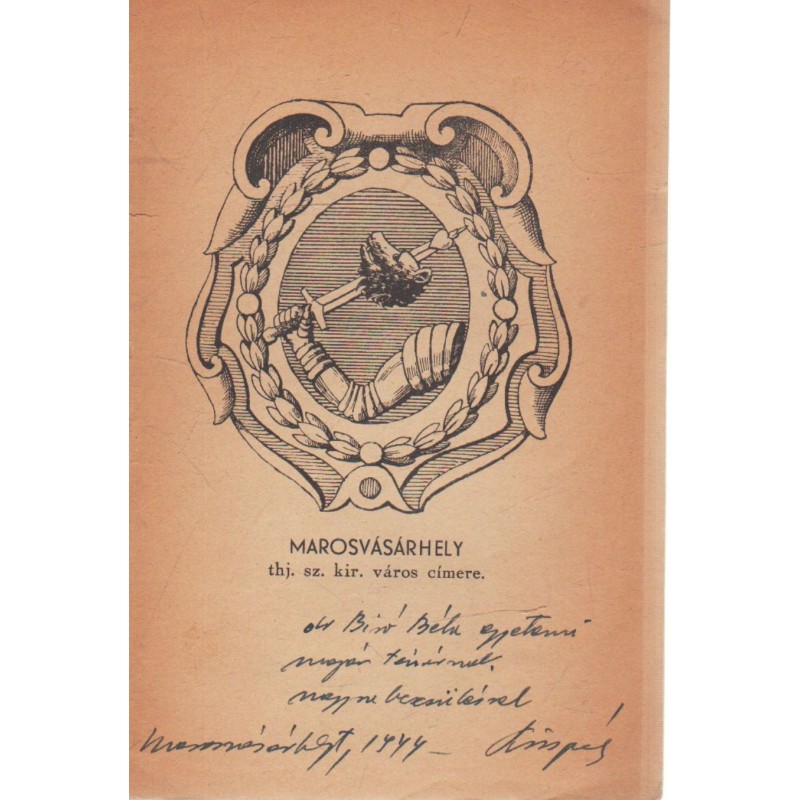 MAROSVÁSÁRHELY
thj. sz. kir. város címere.
dr Biró Béla egyetemi
magán tanárnak,
nagyrabecsüléssel
Marosvásárhelyt, 1944 –